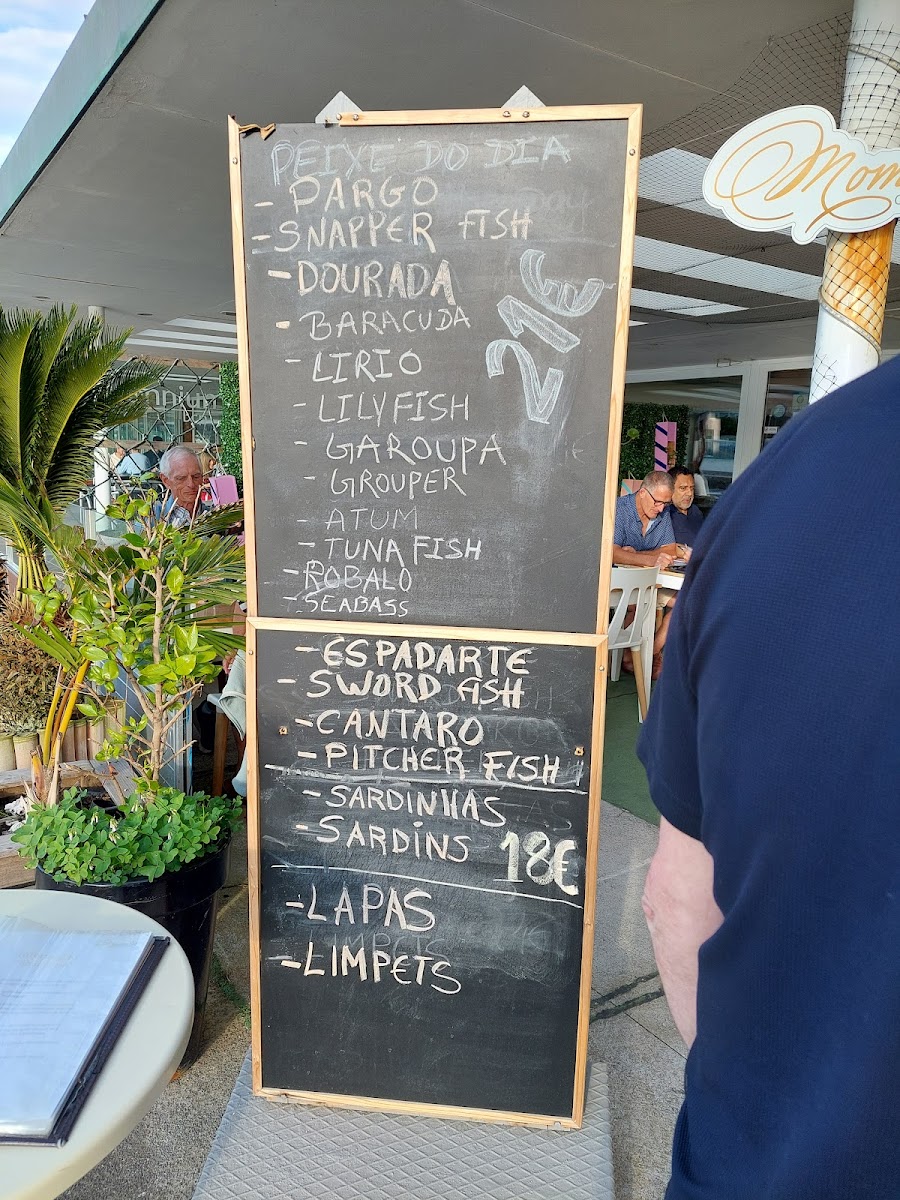 PEIXE DO DIA
- PARGO
- SNAPPER FISH
- DOURADA
21€
- BARACUDA
- LIRIO
- LILYFISH
- GAROUPA
- GROUPER
- ATUM
- TUNA FISH
- ROBALO
- SEABASS
- ESPADARTE
- SWORD FISH
- CANTARO
- PITCHER FISH
- SARDINHAS
- SARDINS
18€
- LAPAS
- LIMPETS
Mom